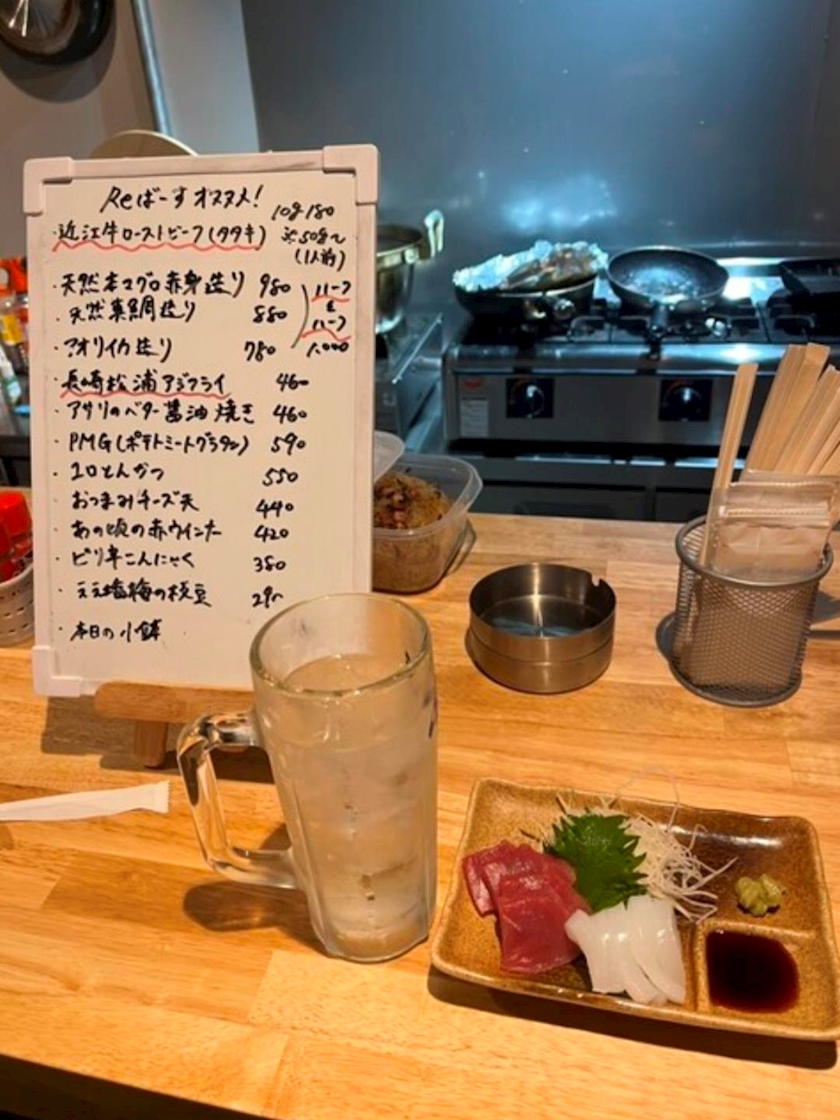 Reばーすオススメ!
・近江牛ローストビーフ(タタキ) 10g 180
※50g〜
(1人前)
・天然本マグロ赤身造り 980
・天然真鯛造り 880
ハーフ
&
ハーフ
1,000
・アオリイカ造り 780
・長崎松浦アジフライ 460
・アサリのバター醤油焼き 460
・PMG(ポテトミートグラタン) 590
・1口とんかつ 550
・おつまみチーズ天 440
・あの頃の赤ウインナー 420
・ピリ辛こんにゃく 380
・ええ塩梅の枝豆 290
・本日の小鉢